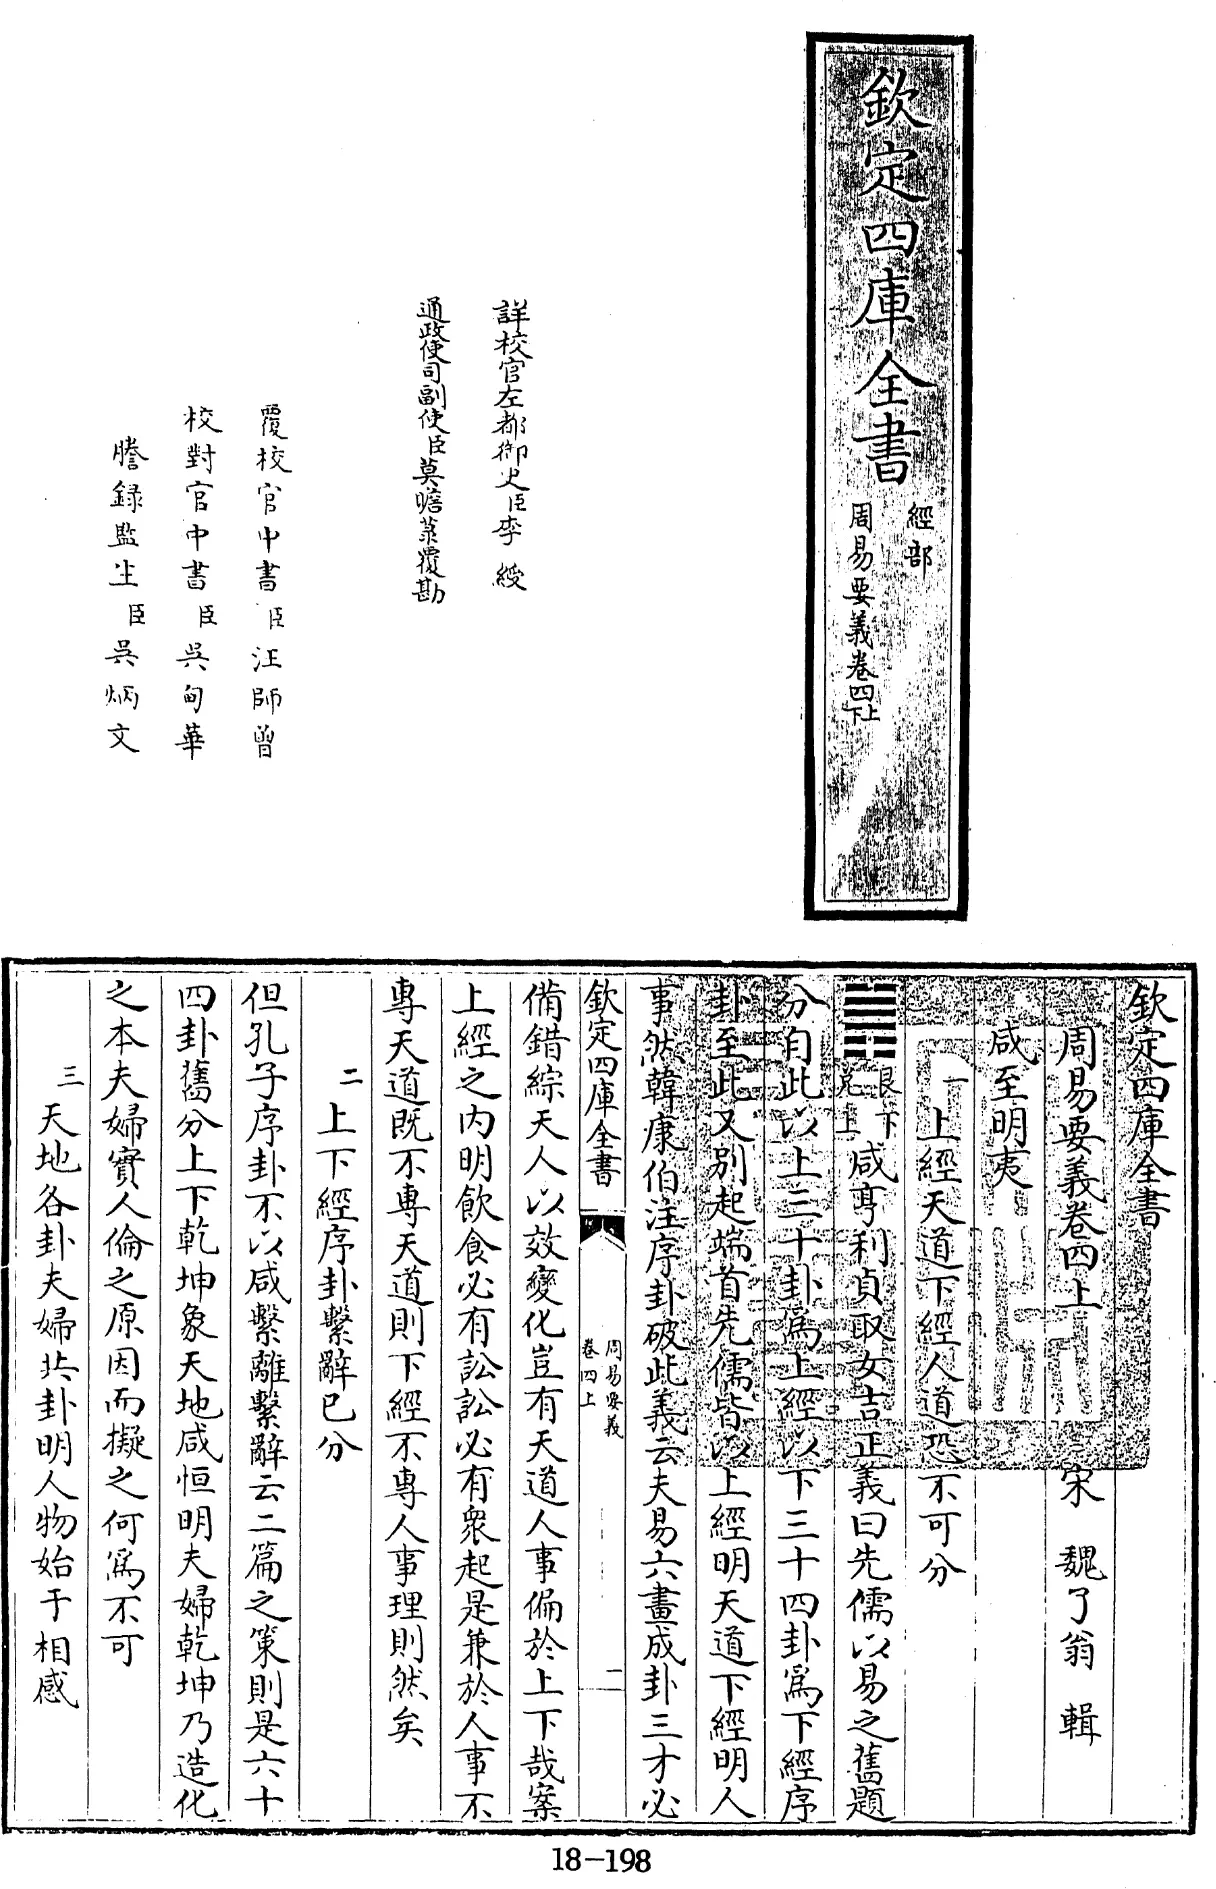 欽定四庫全書
經部
周易要義卷四上下
詳校官左都御史臣李綬
通政使司副使臣莫瞻菉覆勘
覆校官中書臣汪師曾
校對官中書臣吳甸華
謄録監生臣吳炳文
欽定四庫全書
周易要義卷四上
宋 魏了翁 輯
咸至明夷
一上經天道下經人道恐不可分
䷞艮下兌上咸亨利貞取女吉正義曰先儒以易之舊題
分自此以上三十卦爲上經以下三十四卦爲下經序
卦至此又别起端首先儒皆以上經明天道下經明人
事然韓康伯注序卦破此義云夫易六畫成卦三才必
欽定四庫全書
周易要義
卷四上
二
備錯綜天人以效變化豈有天道人事偏於上下哉案
上經之内明飲食必有訟訟必有衆起是兼於人事不
專天道既不專天道則下經不專人事理則然矣
二上下經序卦繫辭已分
但孔子序卦不以咸繫離繫辭云二篇之策則是六十
四卦舊分上下乾坤象天地咸恒明夫婦乾坤乃造化
之本夫婦實人倫之原因而擬之何爲不可
三天地各卦夫婦共卦明人物始于相感
18-198